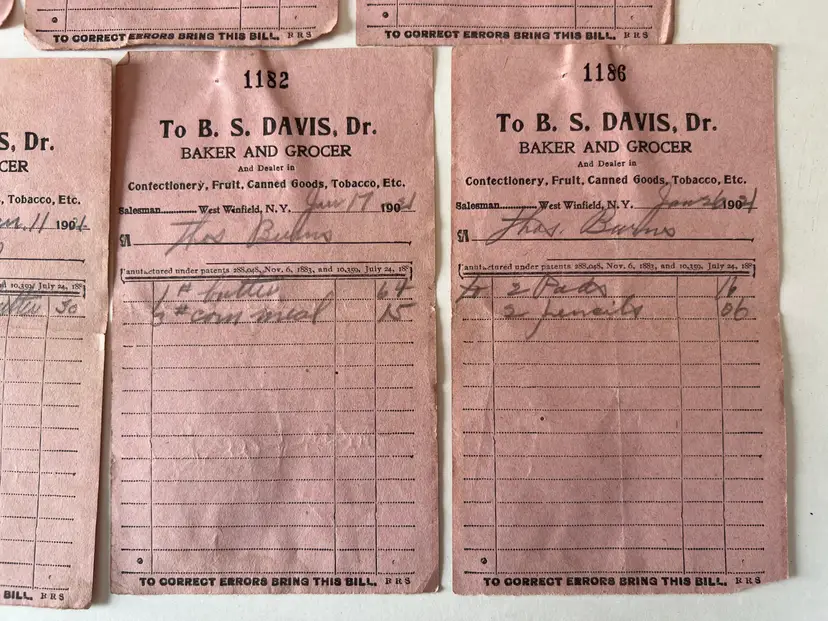 TO CORRECT ERRORS BRING THIS BILL. B R S
TO CORRECT ERRORS BRING THIS BILL. B R S
S, Dr.
CER
, Tobacco, Etc.
11 190
d 10,359, July 24, 188
30
BILL. B R S
1182
To B. S. DAVIS, Dr.
BAKER AND GROCER
And Dealer in
Confectionery, Fruit, Canned Goods, Tobacco, Etc.
Salesman West Winfield, N. Y. Jan 17 190
Thos Burns
anufactured under patents 288,048, Nov. 6, 1883, and 10,359, July 24, 188
1 # butter 64
5 # corn meal 15
TO CORRECT ERRORS BRING THIS BILL. B R S
1186
To B. S. DAVIS, Dr.
BAKER AND GROCER
And Dealer in
Confectionery, Fruit, Canned Goods, Tobacco, Etc.
Salesman West Winfield, N. Y. Jan 26 190
Thos. Burns
anufactured under patents 288,048, Nov. 6, 1883, and 10,359, July 24, 188
2 Pads 16
2 pencils 06
TO CORRECT ERRORS BRING THIS BILL. B R S